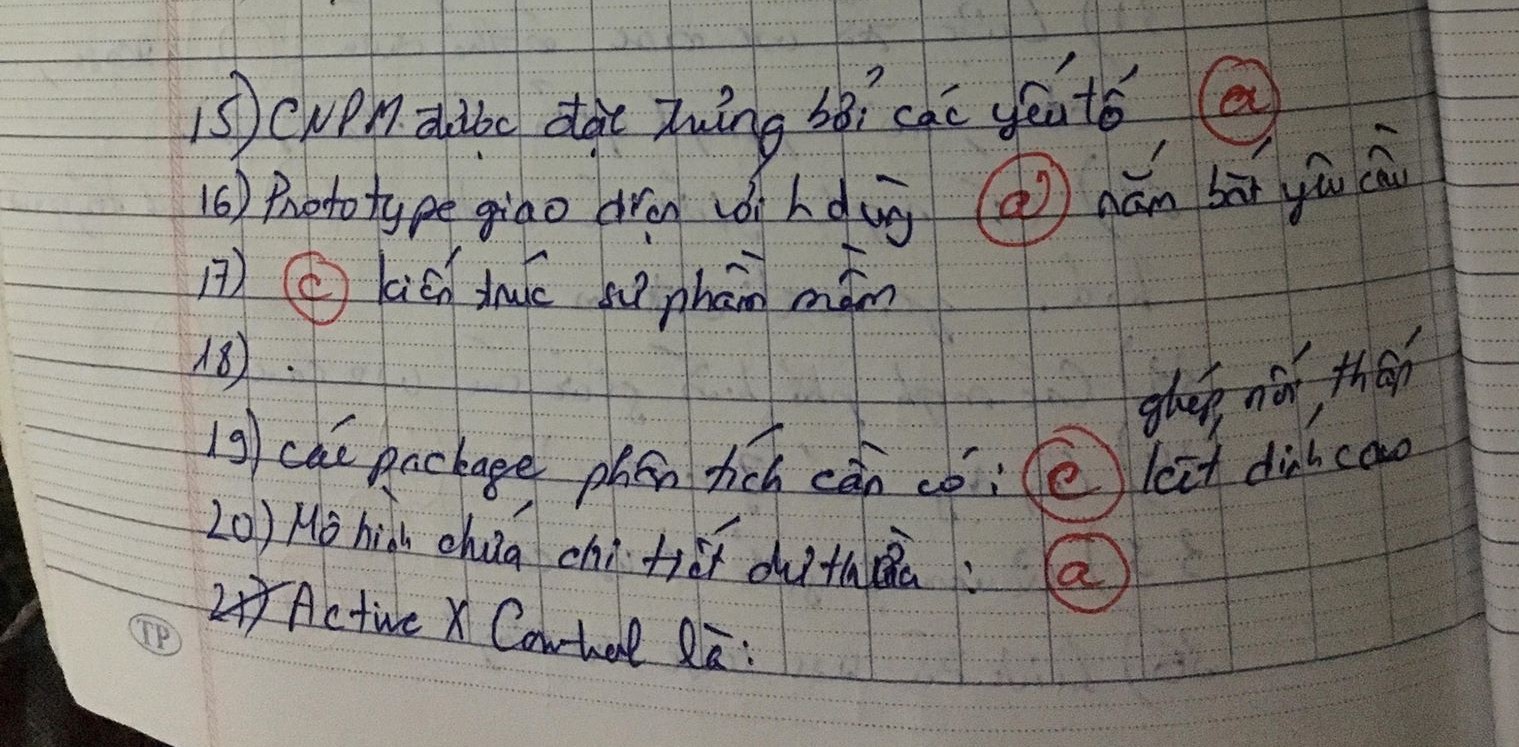 15) CNPM được đặc trưng bởi các yếu tố (a)
16) Prototype giao diện với h dùng (a) nắm bắt yêu cầu
17) (c) kiến trúc sư phần mềm
18) .
ghép nối thấp
19) các package phân tích cần có : (c) kết dính cao
20) Mô hình chứa chi tiết dư thừa : (a)
21) Active X Control là :
TP